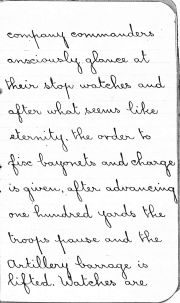 company commanders
ansciously glance at
their stop watches and
after what seems like
eternity. the order to
fisc bayonets and charge
is given, after advancing
one hundred yards the
troops pause and the
Artillery barrage is
lifted. Watches are